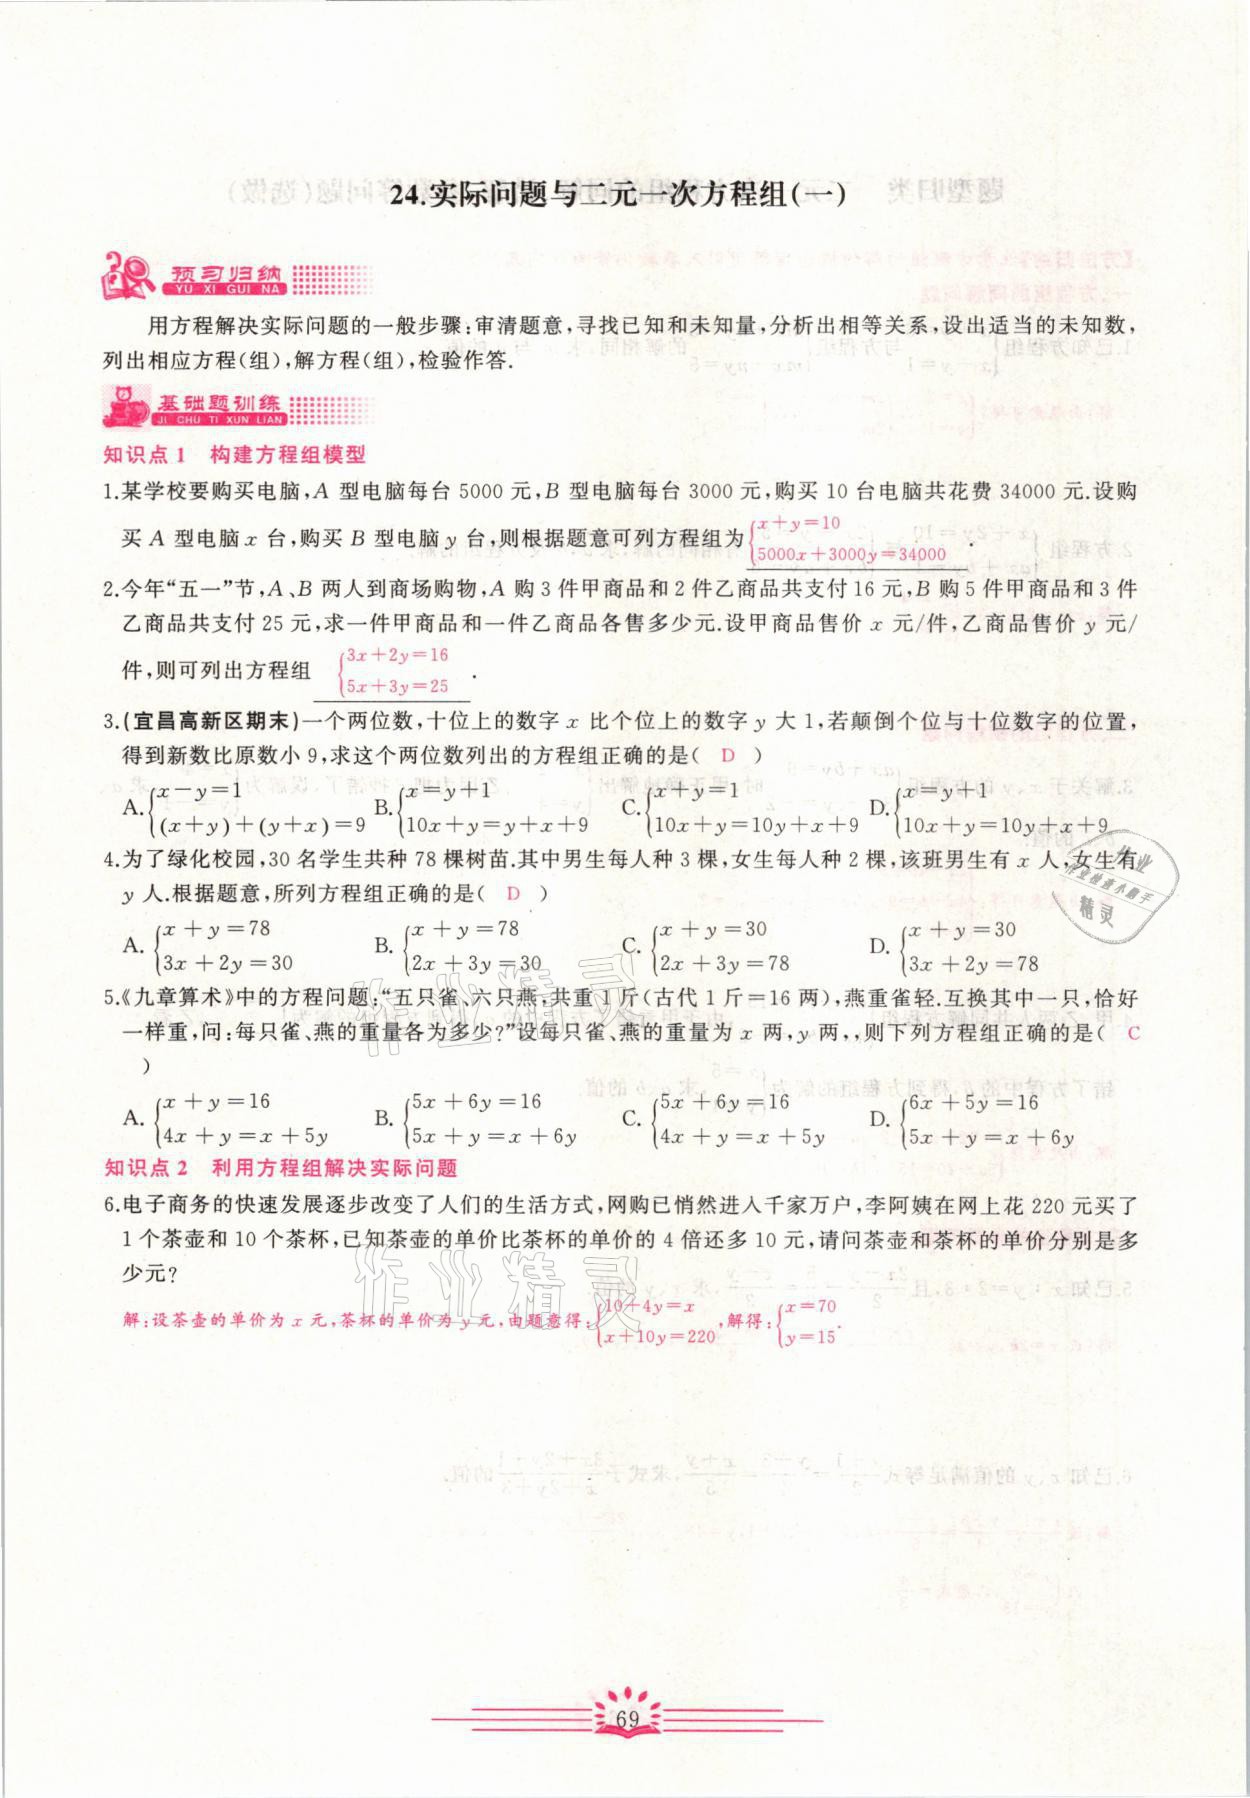 24.实际问题与二元一次方程组(一)
预习归纳
YU XI GUI NA
用方程解决实际问题的一般步骤:审清题意,寻找已知和未知量,分析出相等关系,设出适当的未知数,
列出相应方程(组),解方程(组),检验作答.
基础题训练
JI CHU TI XUN LIAN
知识点 1 构建方程组模型
1.某学校要购买电脑,A 型电脑每台 5000 元,B 型电脑每台 3000 元,购买 10 台电脑共花费 34000 元.设购
买 A 型电脑 x 台,购买 B 型电脑 y 台,则根据题意可列方程组为 {x+y=10
5000x+3000y=34000 .
2.今年“五一”节,A、B 两人到商场购物,A 购 3 件甲商品和 2 件乙商品共支付 16 元,B 购 5 件甲商品和 3 件
乙商品共支付 25 元,求一件甲商品和一件乙商品各售多少元.设甲商品售价 x 元/件,乙商品售价 y 元/
件,则可列出方程组 {3x+2y=16
5x+3y=25 .
3.(宜昌高新区期末)一个两位数,十位上的数字 x 比个位上的数字 y 大 1,若颠倒个位与十位数字的位置,
得到新数比原数小 9,求这个两位数列出的方程组正确的是( D )
A.{x-y=1 B.{x=y+1 C.{x+y=1 D.{x=y+1
(x+y)+(y+x)=9 10x+y=y+x+9 10x+y=10y+x+9 10x+y=10y+x+9
4.为了绿化校园,30 名学生共种 78 棵树苗.其中男生每人种 3 棵,女生每人种 2 棵,该班男生有 x 人,女生有
y 人.根据题意,所列方程组正确的是( D )
A.{x+y=78 B.{x+y=78 C.{x+y=30 D.{x+y=30
3x+2y=30 2x+3y=30 2x+3y=78 3x+2y=78
5.《九章算术》中的方程问题:“五只雀、六只燕,共重 1 斤(古代 1 斤=16 两),燕重雀轻.互换其中一只,恰好
一样重,问:每只雀、燕的重量各为多少?”设每只雀、燕的重量为 x 两,y 两,,则下列方程组正确的是( C
)
A.{x+y=16 B.{5x+6y=16 C.{5x+6y=16 D.{6x+5y=16
4x+y=x+5y 5x+y=x+6y 4x+y=x+5y 5x+y=x+6y
知识点 2 利用方程组解决实际问题
6.电子商务的快速发展逐步改变了人们的生活方式,网购已悄然进入千家万户,李阿姨在网上花 220 元买了
1 个茶壶和 10 个茶杯,已知茶壶的单价比茶杯的单价的 4 倍还多 10 元,请问茶壶和茶杯的单价分别是多
少元?
解:设茶壶的单价为 x 元,茶杯的单价为 y 元,由题意得:{10+4y=x ,解得:{x=70
x+10y=220 y=15.
作业精灵
作业精灵
作业
作业快查小助手
精灵
69